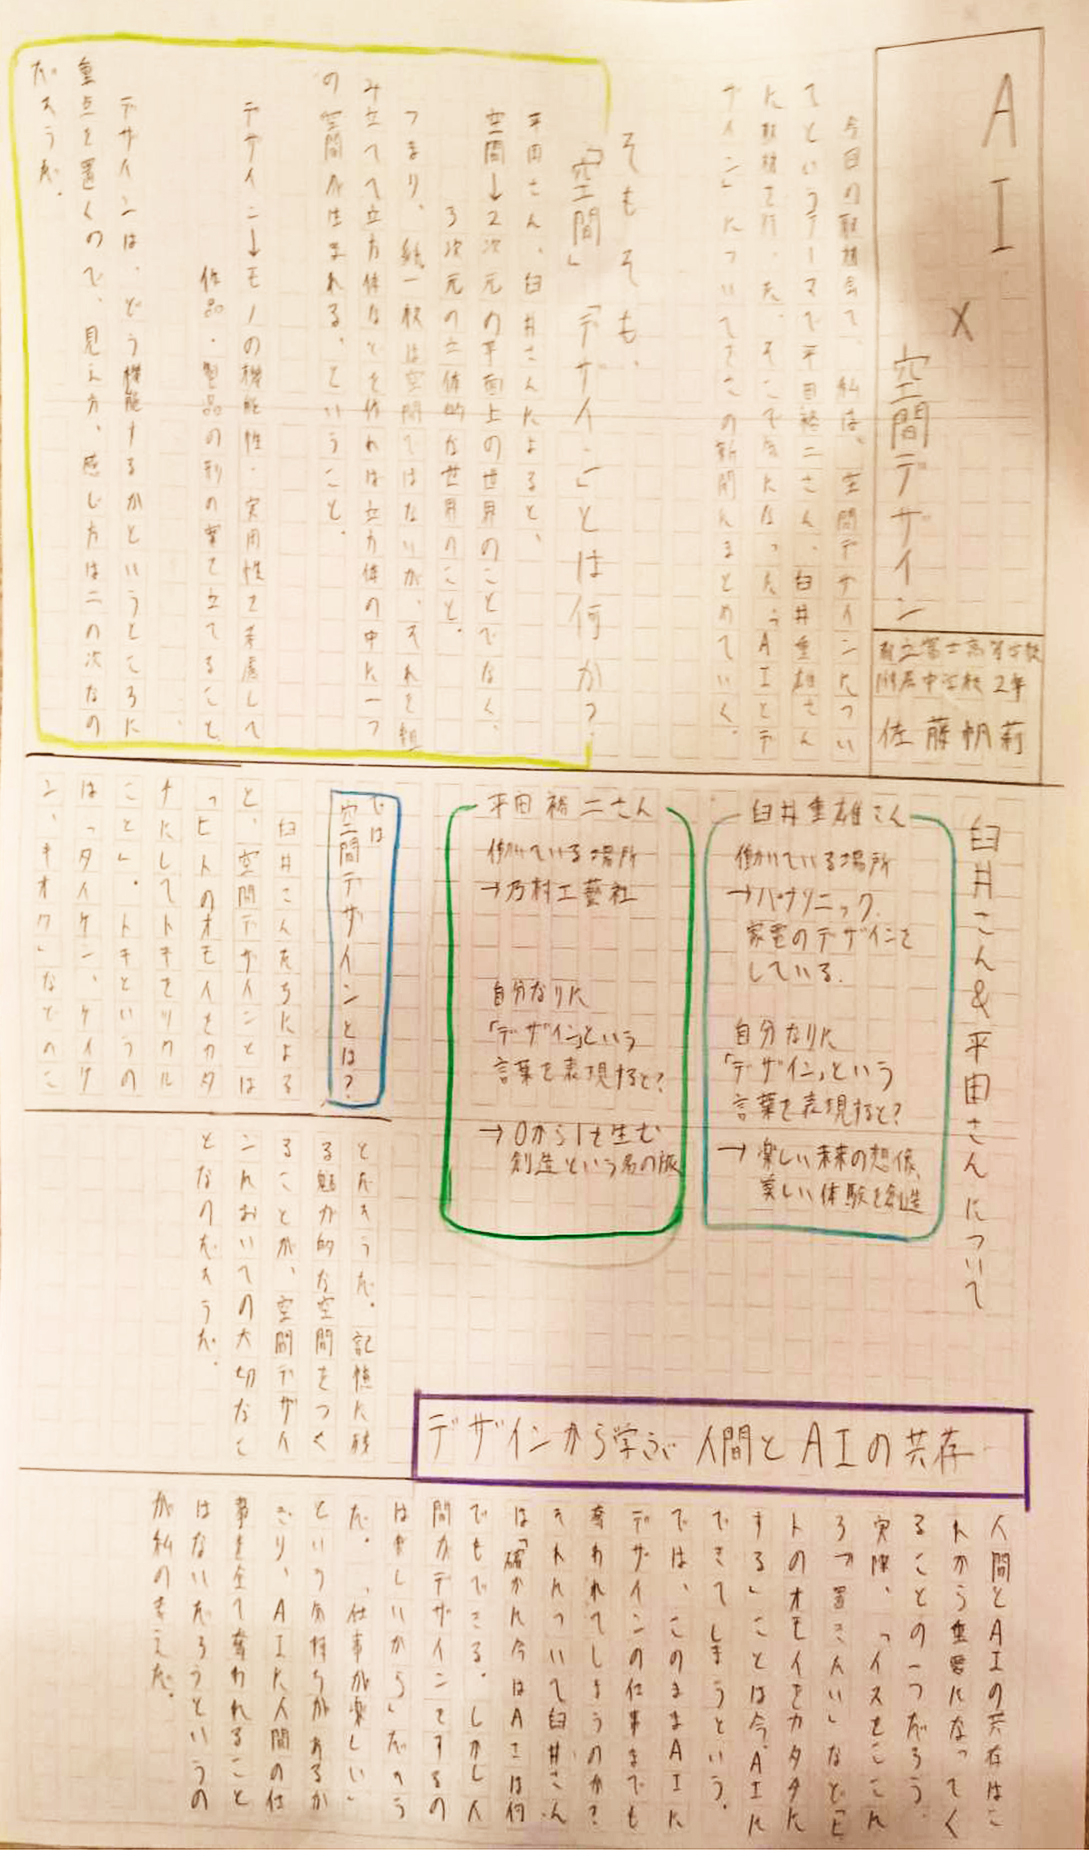 AI
×
空間デザイン
都立富士高等学校
附属中学校 2年
佐藤帆莉
今回の取材会で、私は、空間デザインについ
てというテーマで平田裕二さん、臼井重雄さん
に取材を行った。そこで気になった「AIとデ
ザイン」についてをこの新聞にまとめていく。
そもそも、
「空間」「デザイン」とは何か?
平田さん、臼井さんによると、
空間→2次元の平面上の世界のことでなく、
3次元の立体的な世界のこと。
つまり、紙一枚は空間ではないが、それを組
み立てて立方体などを作れば立方体の中に一つ
の空間が生まれる、ということ。
デザイン→モノの機能性・実用性を考慮して
作品・製品の形の案を立てること。
デザインは、どう機能するかというところに
重点を置くので、見え方、感じ方は二の次なの
だそうだ。
臼井さん&平田さんについて
臼井重雄さん
働いている場所
→パナソニック
家電のデザインを
している。
自分なりに
「デザイン」という
言葉を表現すると?
→楽しい未来の想像、
美しい体験を創造
平田裕二さん
働いている場所
→乃村工藝社
自分なりに
「デザイン」という
言葉を表現すると?
→0から1を生む
創造という名の旅
では
空間デザインとは?
臼井さんたちによる
と、空間デザインとは
「ヒトのオモイをカタ
チにしてトキをツクル
こと」。トキというの
は「タイケン、ケイケ
ン、キオク」などのこ
とだそうだ。記憶に残
る魅力的な空間をつく
ることが、空間デザイ
ンにおいての大切なこ
となのだそうだ。
デザインから学ぶ 人間とAIの共存
人間とAIの共存はこ
れから重要になってく
ることの一つだろう。
実際、「イスをここに
3つ置きたい」など「ヒ
トのオモイをカタチに
する」ことは今、AIに
できてしまうという。
では、このままAIに
デザインの仕事までも
奪われてしまうのか?
それについて臼井さん
は「確かに今はAIは何
でもできる。しかし人
間がデザインをするの
は楽しいから」だそう
だ。「仕事が楽しい」
という気持ちがあるか
ぎり、AIに人間の仕
事を全て奪われること
はないだろうというの
が私の考えだ。